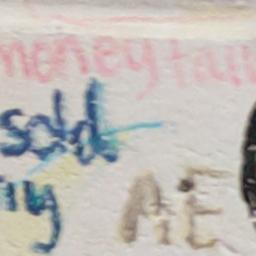 money tall
sold
ny
AE